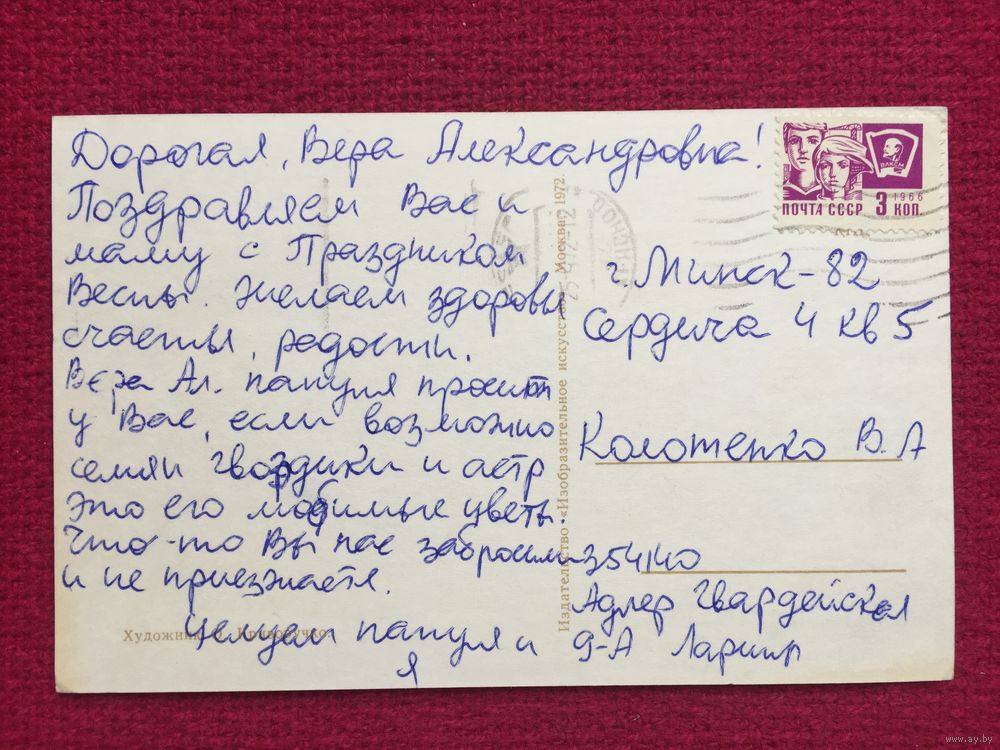 Дорогая, Вера Александровна!
Поздравляем Вас и
маму с Праздником
Весны. Желаем здоровья
счастья, радости.
Вера Ал. папуля просит
у Вас, если возможно
семян гвоздики и астр
Это его любимые цветы.
Что-то Вы нас забросили
и не приезжаете.
Целуем папуля и
я
Художник О. Криворучко
Издательство «Изобразительное искусство». Москва. 1972.
ПОЧТА СССР 3 КОП.
1966
ВЛКСМ
г. Минск-82
Сердича 4 кв 5
Колотенко В. А
354140
Адлер Гвардейская
9-А
www.ay.by